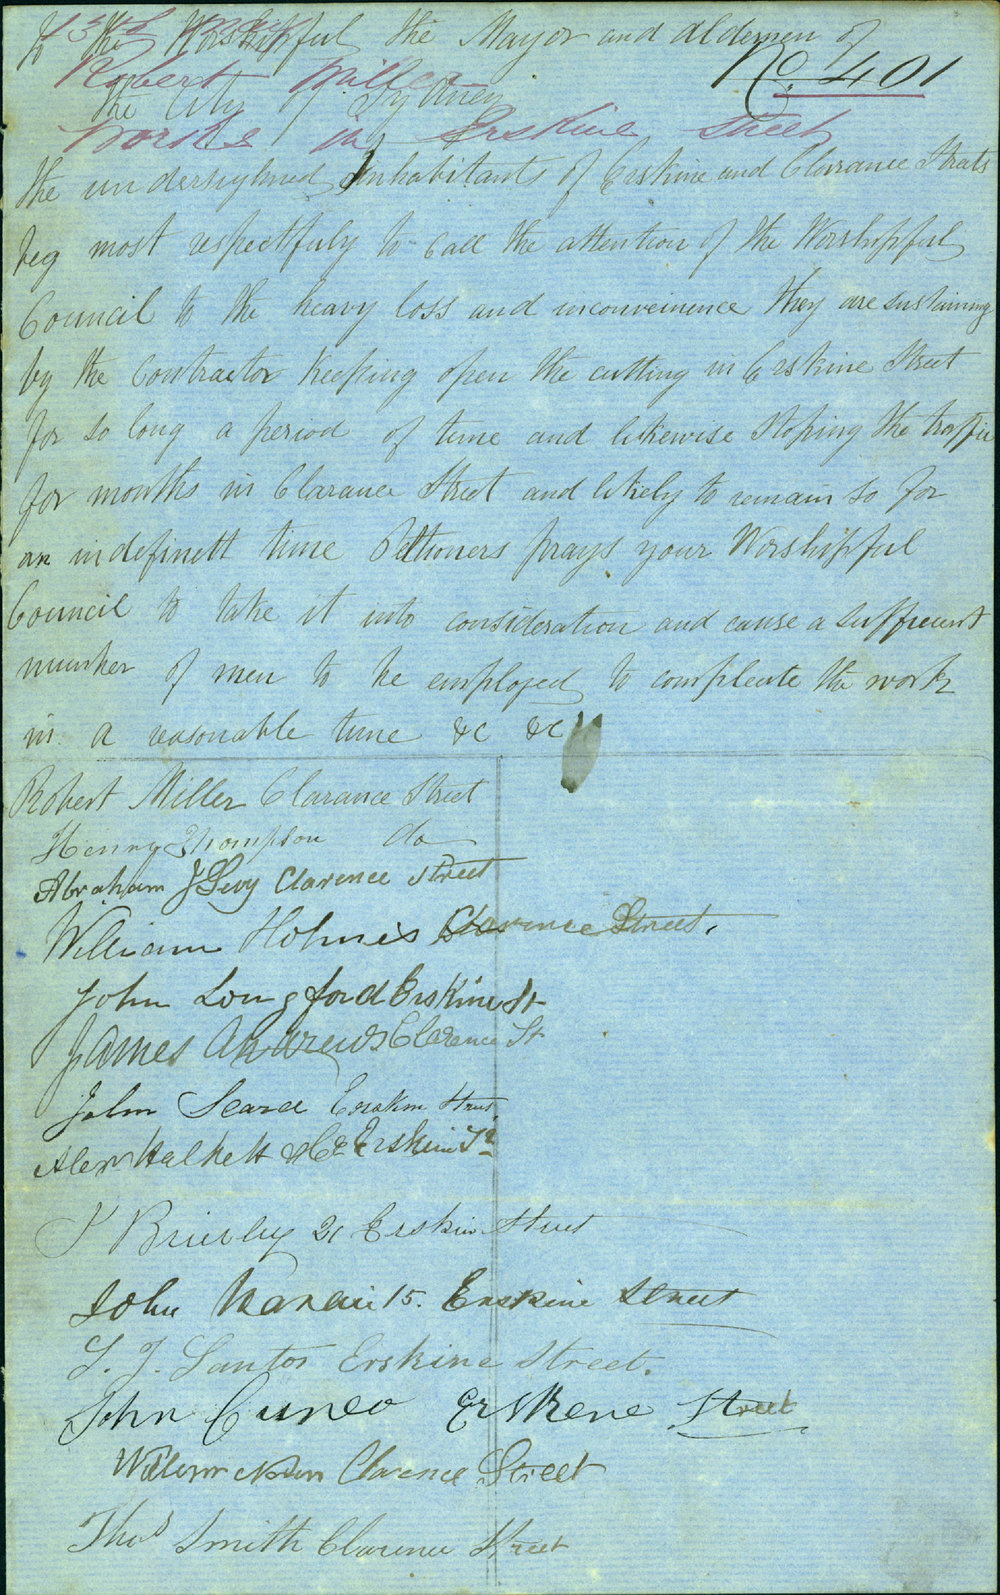 To the Worshipful the Mayor and Aldermen of
No. 401
Robert Miller
the City of Sydney
Works in Erskine Street
the undersighned Inhabitants of Erskine and Clarance Streets
beg most respectfuly to call the attention of the Worshipful
Council to the heavy loss and inconveinence they are sustaining
by the Contractor Keeping open the cutting in Erskine Street
for so long a period of time and likewise Stoping the traffic
for months in Clarance Street and likely to remain so for
an indefinett time Petitioners prays your Worshipful
Council to take it into consideration and cause a sufficient
number of men to be employed to compleate the work
in a reasonable time &c &c
Robert Miller Clarance Street
Henry Thompson do
Abraham J Levy Clarence Street
William Holmes Clarence Street.
John Longford Erskine St
James Andrews Clarence St
John Searle Erskin Street
Alexr Halkett & Co Erskine St
J Brierley 21 Erskine Street
John 15. Erskine Street
T. J. Santos Erskine Street.
John Cuneo Erskene Street
Clarence Street
Thos Smith Clarence Street